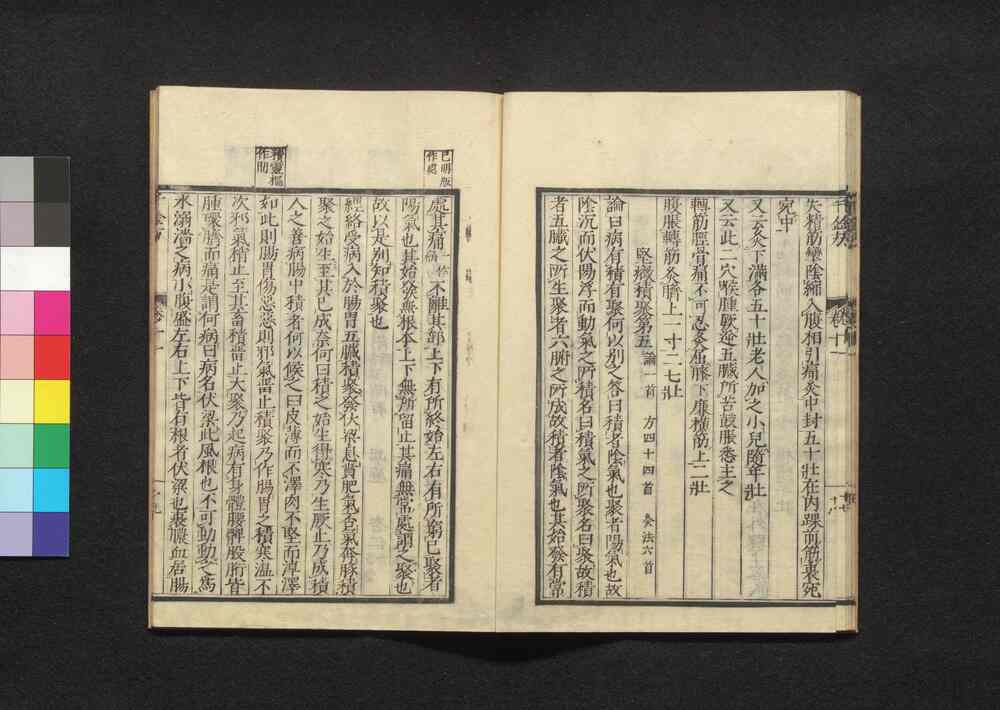 失精筋攣陰縮入腹相引痛灸中封五十壯在內踝前筋裏宛
宛中
又云灸下滿各五十壯老人加之小兒隨年壯
又云此二穴喉腫厥逆五臟所苦鼓脹悉主之
轉筋脛骨痛不可忍灸屈膝下廉橫筋上三壯
腹脹轉筋灸臍上一寸二七壯
堅癥積聚第五 論一首 方四十四首 灸法六首
論曰病有積有聚何以別之答曰積者陰氣也聚者陽氣也故
陰沉而伏陽浮而動氣之所積名曰積氣之所聚名曰聚故積
者五臟之所生聚者六腑之所成故積者陰氣也其始發有常
處其痛不離其部上下有所終始左右有所窮已聚者
陽氣也其始發無根本上下無所留止其痛無常處謂之聚也
故以是別知積聚也
經絡受病入於腸胃五臟積聚發伏梁息賁肥氣否氣奔豚積
聚之始生至其已成奈何曰積之始生得寒乃生厥止乃成積
人之善病腸中積者何以候之曰皮薄而不澤肉不堅而淖澤
如此則腸胃傷惡惡則邪氣留止積聚乃作腸胃之積寒溫不
次邪氣稍止至其畜積留止大聚乃起病有身體腰髀股胻皆
腫環臍而痛是謂何病曰病名伏梁此風根也不可動動之為
水溺濇之病小腹盛左右上下皆有根者伏梁也裹膿血居腸
已明版
作處
積靈樞
作肋